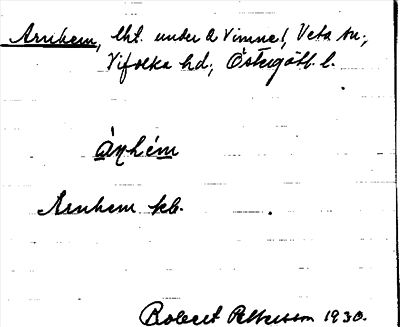 Arnhem, lht. under A Vimne!, Veta sn.,
Vifolka hd., Östergötl. l.
áṇhém
Arnhem kb.
Robert Pettersson 1930.